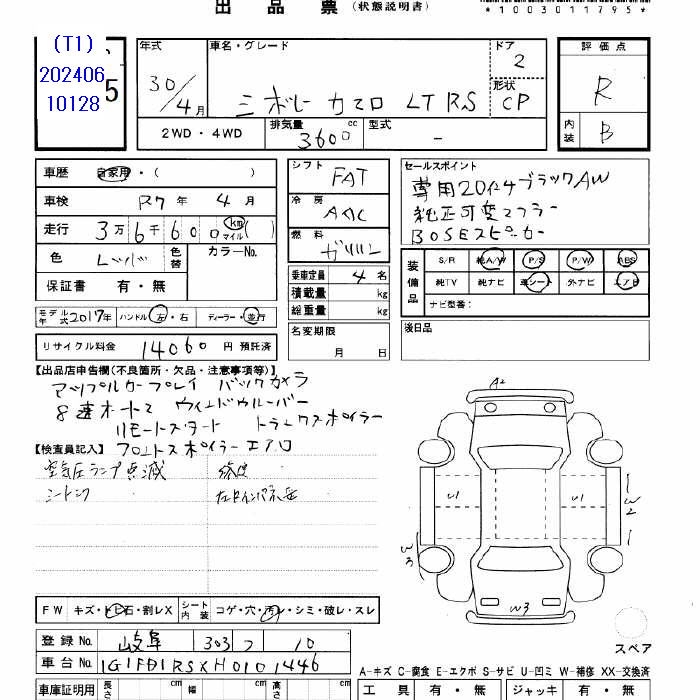 出 品 票 (状態説明書)
*1003011795*
(T1)
202406
10128
5
年式 車名・グレード ドア 評価点
30/4月 シボレー カマロ LT RS 2 R
形状 CP
2WD・4WD 排気量 3600 cc 型式 - 内装 B
車歴 自家用・( ) シフト FAT セールスポイント
車検 R7年 4月 冷房 AAC 専用20インチブラックAW
走行 3万6千600 km マイル ( ) 純正可変マフラー
燃料 ガソリン BOSEスピーカー
色 レッド 色替 カラーNo.
保証書 有・無
乗車定員 4 名
積載量 kg
総重量 kg
装備品 S/R 純A/W P/S P/W ABS
純TV 純ナビ 革シート 外ナビ エアB
ナビ型番:
モデル年式 2017年 ハンドル 左・右 ディーラー・並行
名変期限 月 日
後日品
リサイクル料金 14060 円 預託済
【出品店申告欄(不良箇所・欠品・注意事項等)】
アップルカープレイ バックカメラ
8速オートマ ウィンドウルーバー
リモートスタート トランクスポイラー
【検査員記入】 フロントスポイラーエアロ
空気圧ランプ点滅
A2
U1 U1
W2
W3
W3
スペア
FW キズ・トビ石・割レX シート内装 コゲ・穴・汚レ・シミ・破レ・スレ
登録No. 岐阜 303 フ 10
車台No. 1G1FD1RSXH0101446
A-キズ C-腐食 E-エクボ S-サビ U-凹ミ W-補修 XX-交換済
車庫証明用 長さ cm 幅 cm 高さ cm 工具 有・無 ジャッキ 有・無